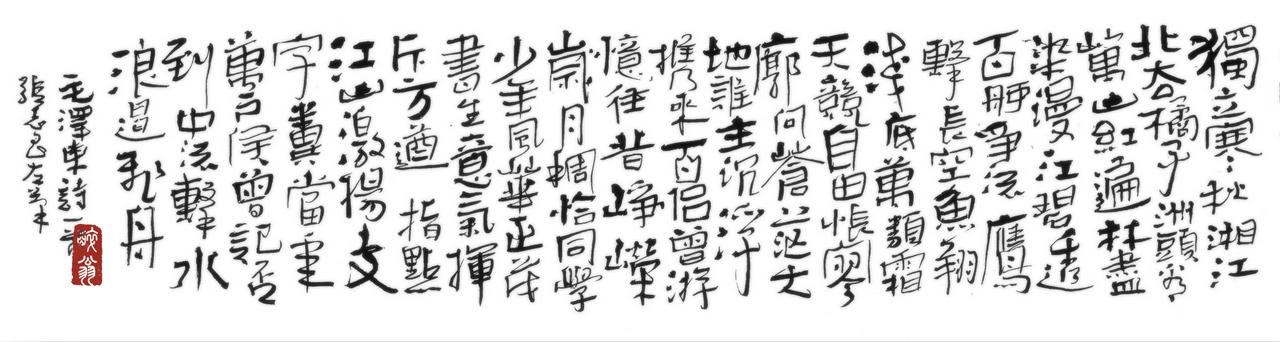 獨立寒秋湘江
北去橘子洲頭看
萬山紅遍林盡
染漫江碧透
百舸爭流鷹
擊長空魚翔
淺底萬類霜
天競自由悵寥
廓問蒼茫大
地誰主沉浮
携來百侶曾游
憶往昔崢嶸
歲月稠恰同學
少年風華正茂
書生意氣揮
斥方遒指點
江山激揚文
字糞當年
萬户侯曾記否
到中流擊水
浪遏飛舟
毛澤東詩一首
張志左筆
翁